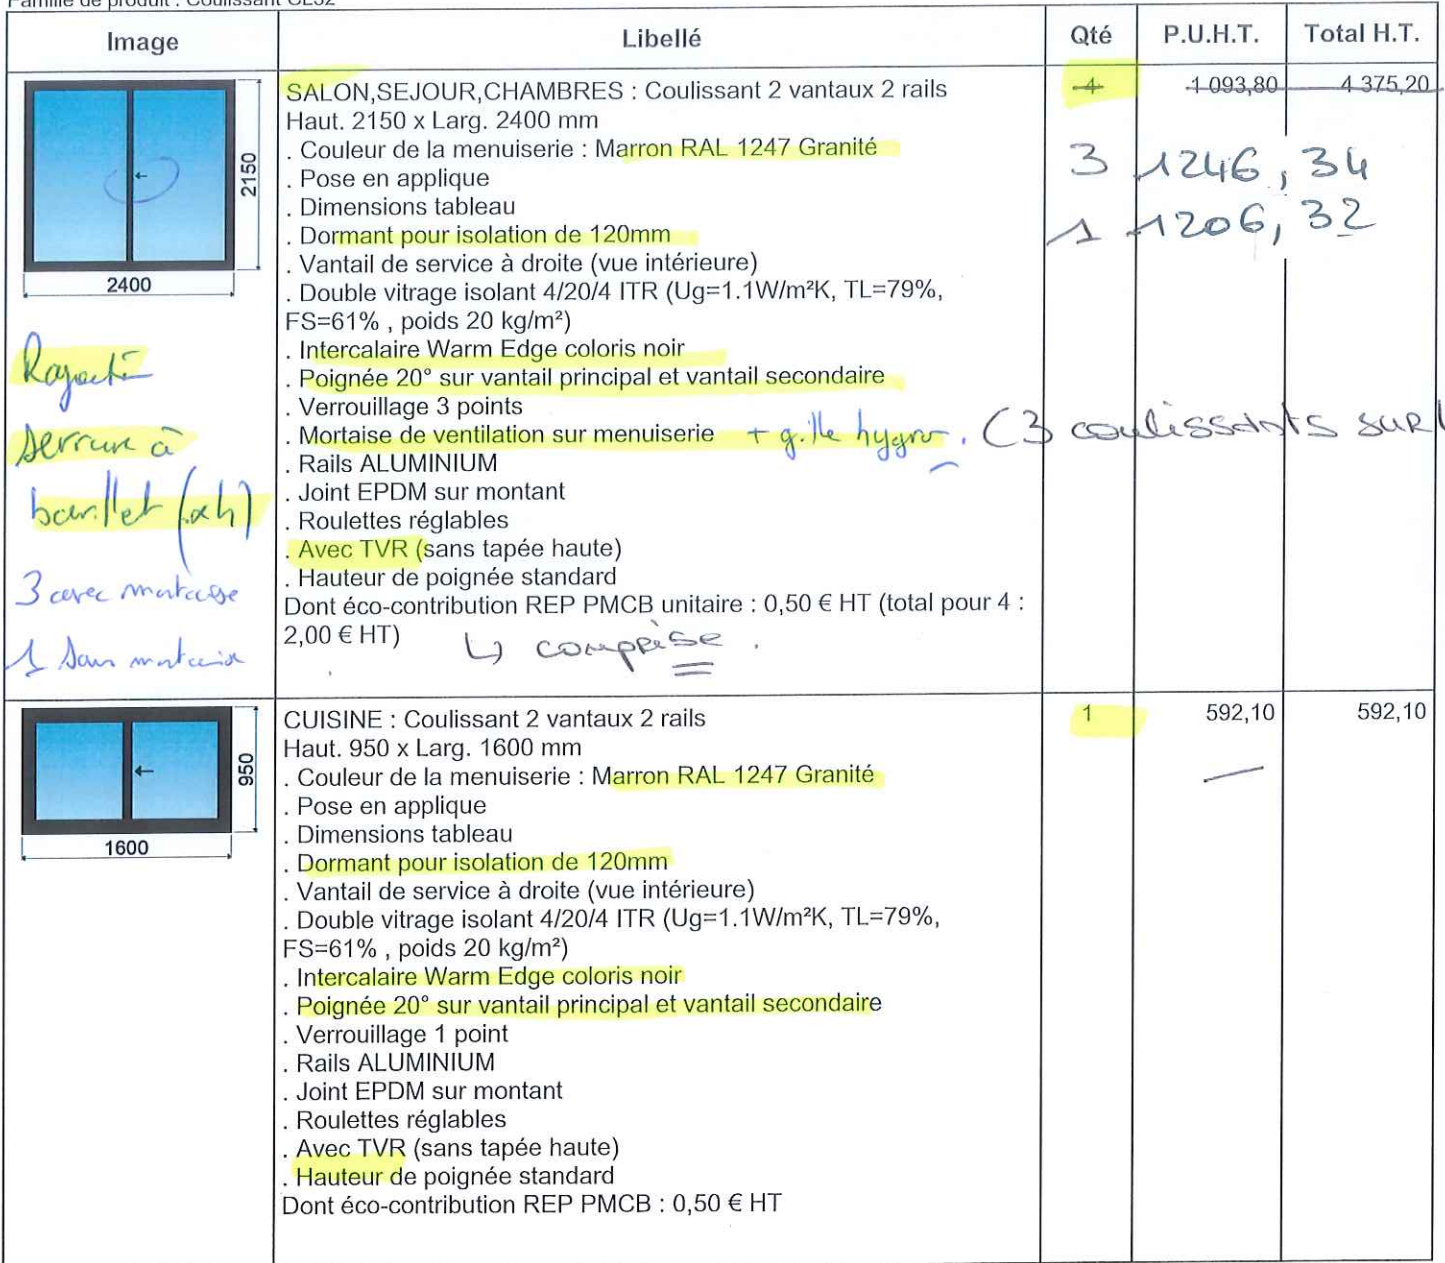 Famille de produit : Coulissant CL32
Image Libellé Qté P.U.H.T. Total H.T.
SALON,SEJOUR,CHAMBRES : Coulissant 2 vantaux 2 rails 4 1 093,80 4 375,20
Haut. 2150 x Larg. 2400 mm
. Couleur de la menuiserie : Marron RAL 1247 Granité
3 1246,34
. Pose en applique
2150
. Dimensions tableau
1 1206,32
. Dormant pour isolation de 120mm
. Vantail de service à droite (vue intérieure)
2400
. Double vitrage isolant 4/20/4 ITR (Ug=1.1W/m²K, TL=79%,
FS=61% , poids 20 kg/m²)
. Intercalaire Warm Edge coloris noir
. Poignée 20° sur vantail principal et vantail secondaire
. Verrouillage 3 points
. Mortaise de ventilation sur menuiserie + grille hygro. (3 coulissants sur
. Rails ALUMINIUM
. Joint EPDM sur montant
. Roulettes réglables
. Avec TVR (sans tapée haute)
. Hauteur de poignée standard
Dont éco-contribution REP PMCB unitaire : 0,50 € HT (total pour 4 :
2,00 € HT) ↳ comprise.
serrure à
barillet (x4)
3 avec mortaise
1 sans mortaise
CUISINE : Coulissant 2 vantaux 2 rails 1 592,10 592,10
Haut. 950 x Larg. 1600 mm
950
. Couleur de la menuiserie : Marron RAL 1247 Granité
. Pose en applique
. Dimensions tableau
1600
. Dormant pour isolation de 120mm
. Vantail de service à droite (vue intérieure)
. Double vitrage isolant 4/20/4 ITR (Ug=1.1W/m²K, TL=79%,
FS=61% , poids 20 kg/m²)
. Intercalaire Warm Edge coloris noir
. Poignée 20° sur vantail principal et vantail secondaire
. Verrouillage 1 point
. Rails ALUMINIUM
. Joint EPDM sur montant
. Roulettes réglables
. Avec TVR (sans tapée haute)
. Hauteur de poignée standard
Dont éco-contribution REP PMCB : 0,50 € HT